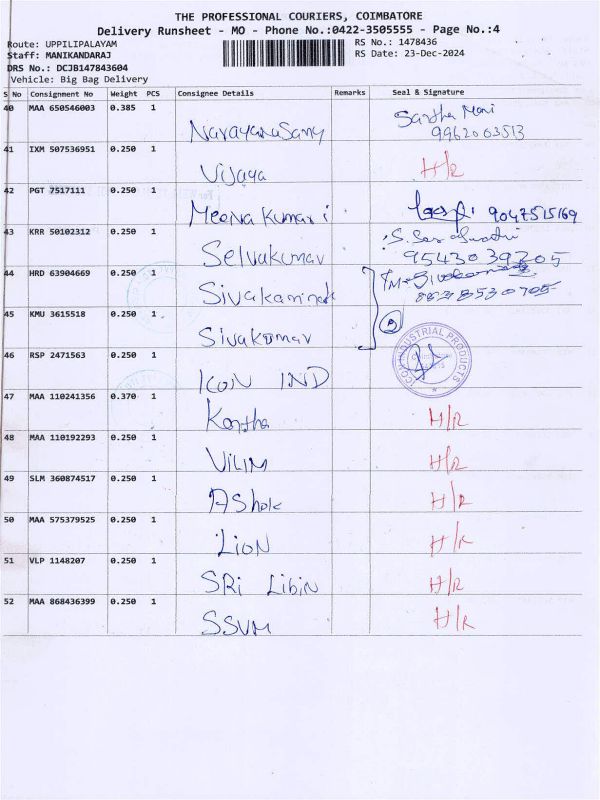 THE PROFESSIONAL COURIERS, COIMBATORE
Delivery Runsheet - MO - Phone No.:0422-3505555 - Page No.:4
Route: UPPILIPALAYAM RS No.: 1478436
Staff: MANIKANDARAJ RS Date: 23-Dec-2024
DRS No.: DCJB147843604
Vehicle: Big Bag Delivery
S No Consignment No Weight PCS Consignee Details Remarks Seal & Signature
40 MAA 650546003 0.385 1 Narayanasamy 9962003513
41 IXM 507536951 0.250 1 Vijaya H/R
42 PGT 7517111 0.250 1 Meena kumari 9047515169
43 KRR 50102312 0.250 1 Selvakumar 9543039205
44 HRD 63904669 0.250 1
45 KMU 3615518 0.250 1 Sivakumar
46 RSP 2471563 0.250 1 ICON IND INDUSTRIAL PRODUCTS
47 MAA 110241356 0.370 1 H/R
48 MAA 110192293 0.250 1 H/R
49 SLM 360874517 0.250 1 AShok H/R
50 MAA 575379525 0.250 1 LION H/R
51 VLP 1148207 0.250 1 SRi Libin H/R
52 MAA 868436399 0.250 1 SSVM H/R